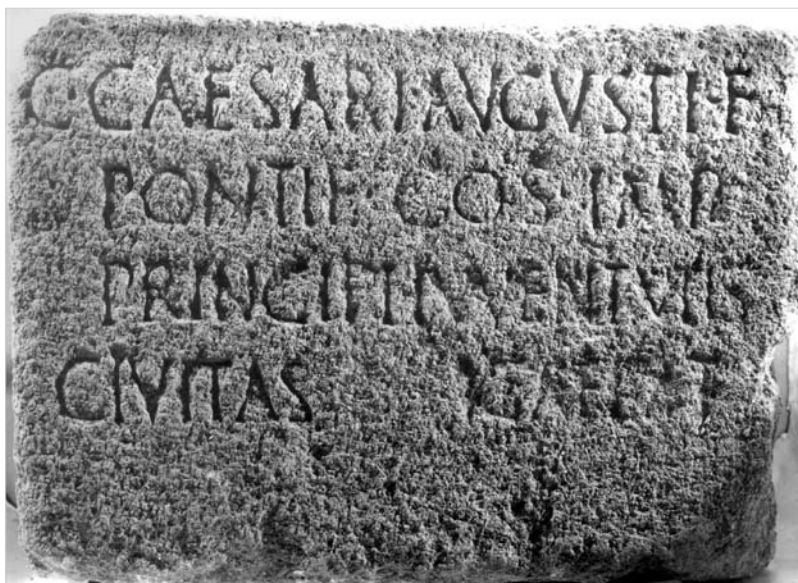 C·CAESARI AVGVSTI·F
PONTIF·COS·IMP
PRINCIPI IVVENTVTIS
CIVITAS